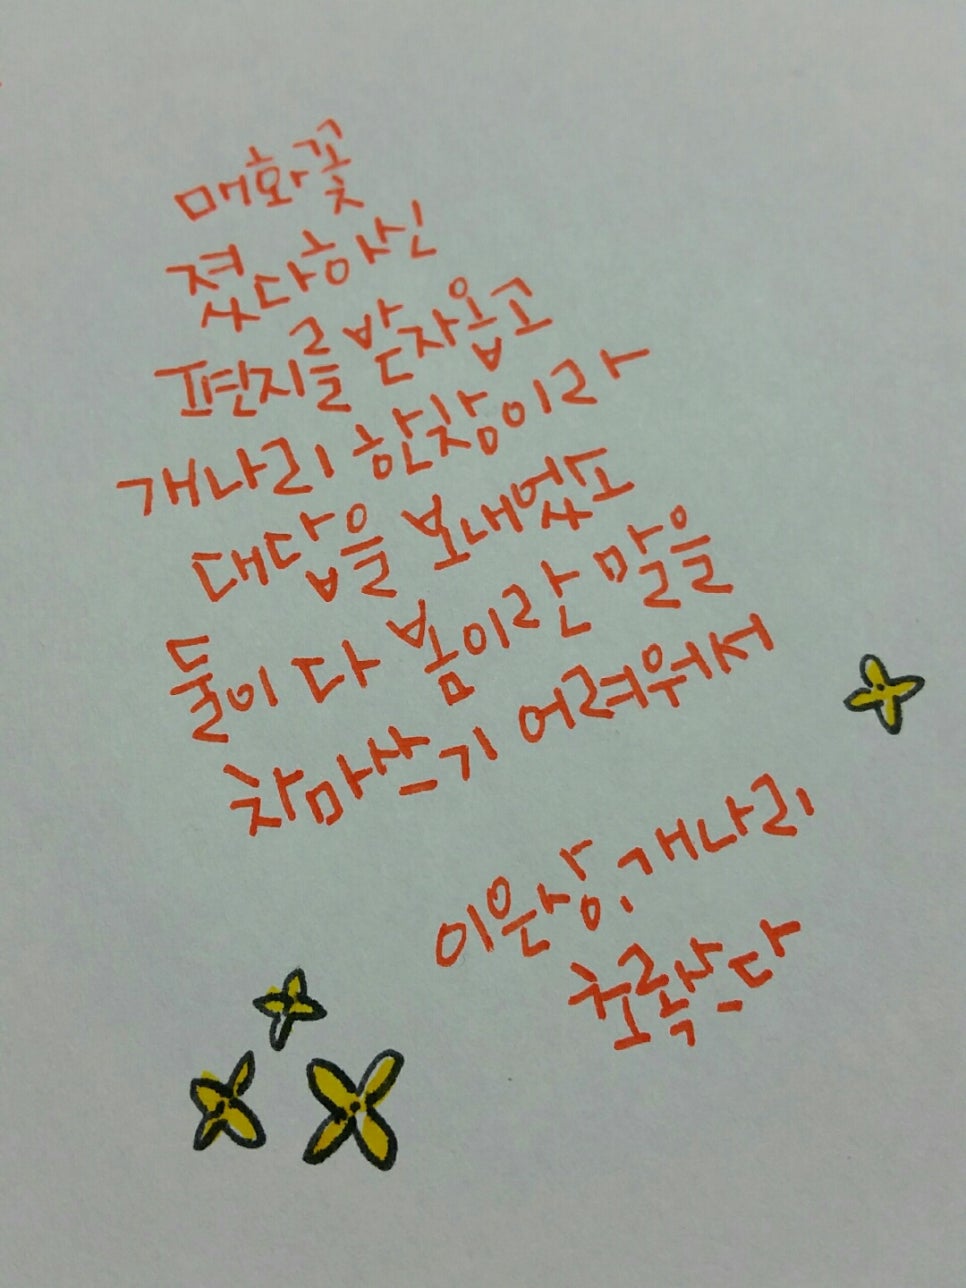 매화꽃
졌다하신
편지를 받자옵고
개나리 한창이라
대답을 보내었소
둘이 다 봄이란 말을
차마쓰기 어려워서
이은상, 개나리
초록쓰다